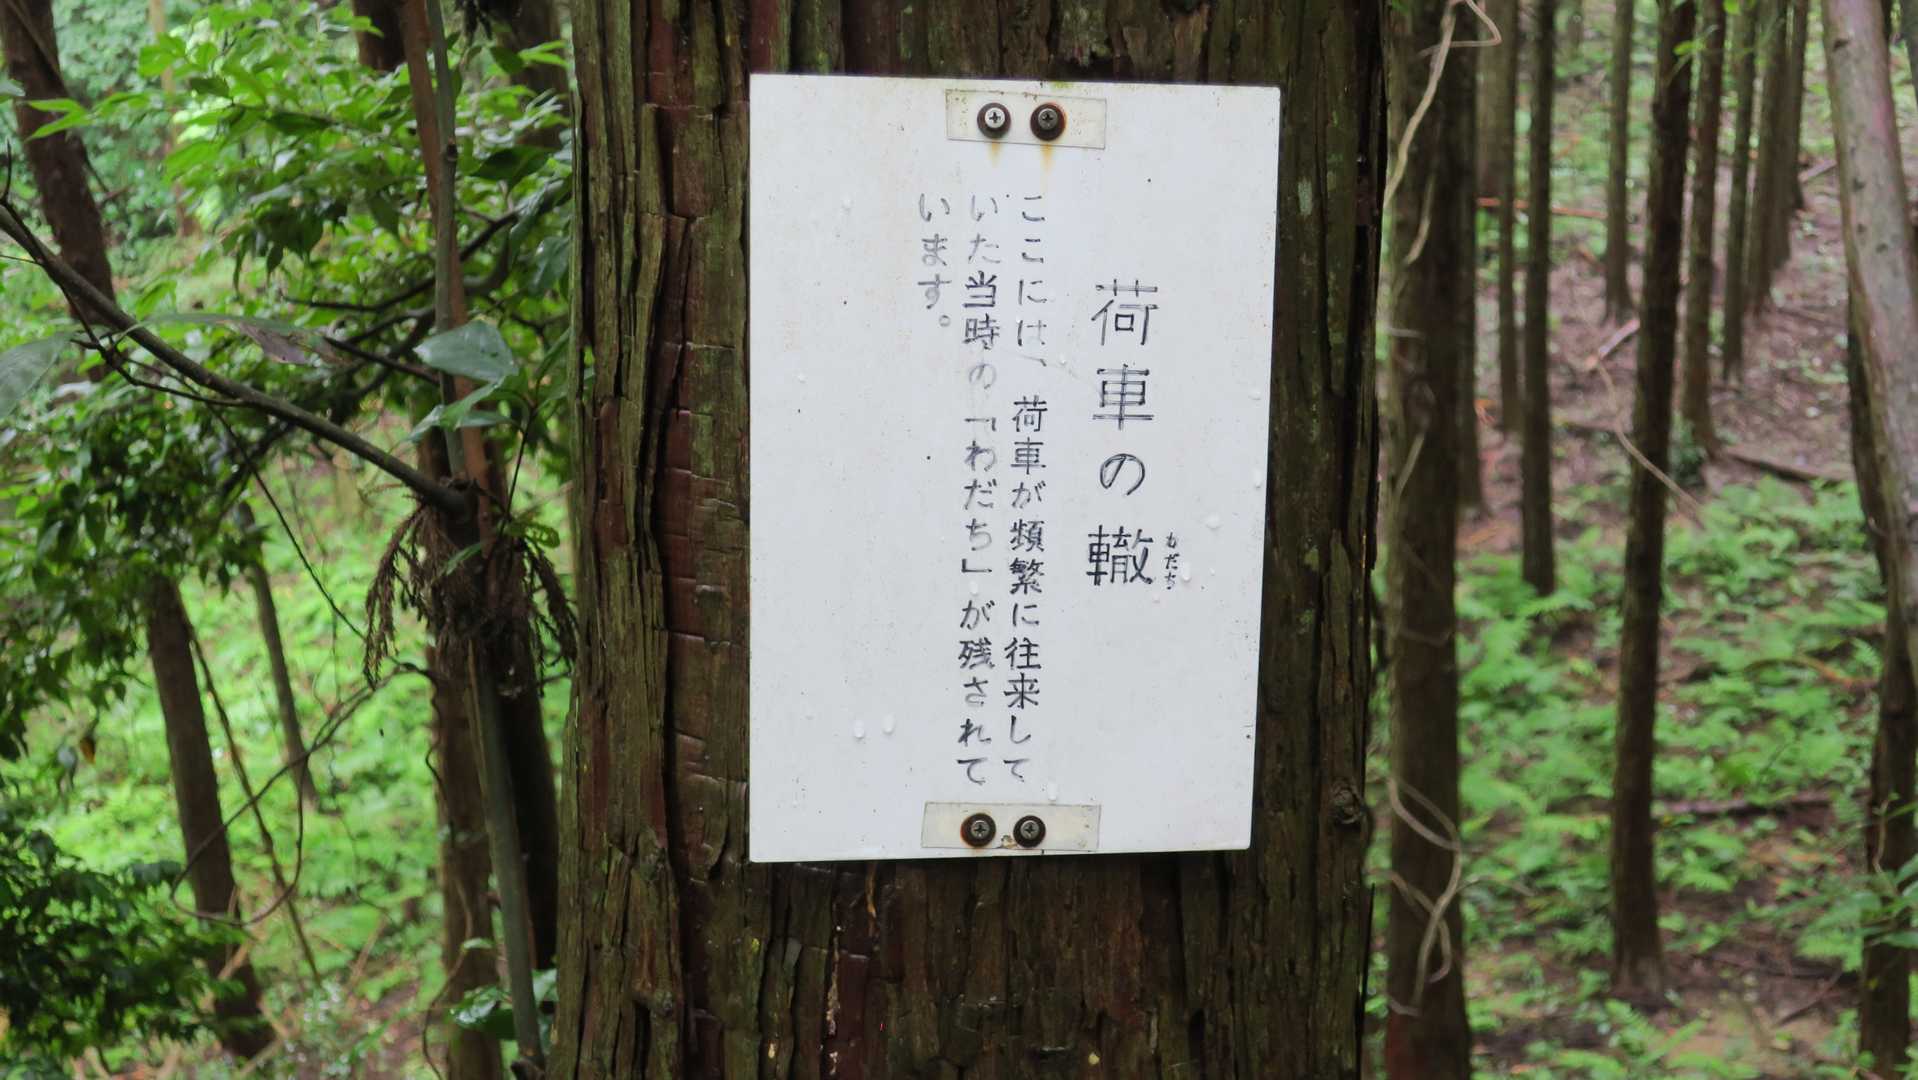 荷車の轍
わだち
ここには、荷車が頻繁に往来して
いた当時の「わだち」が残されて
います。